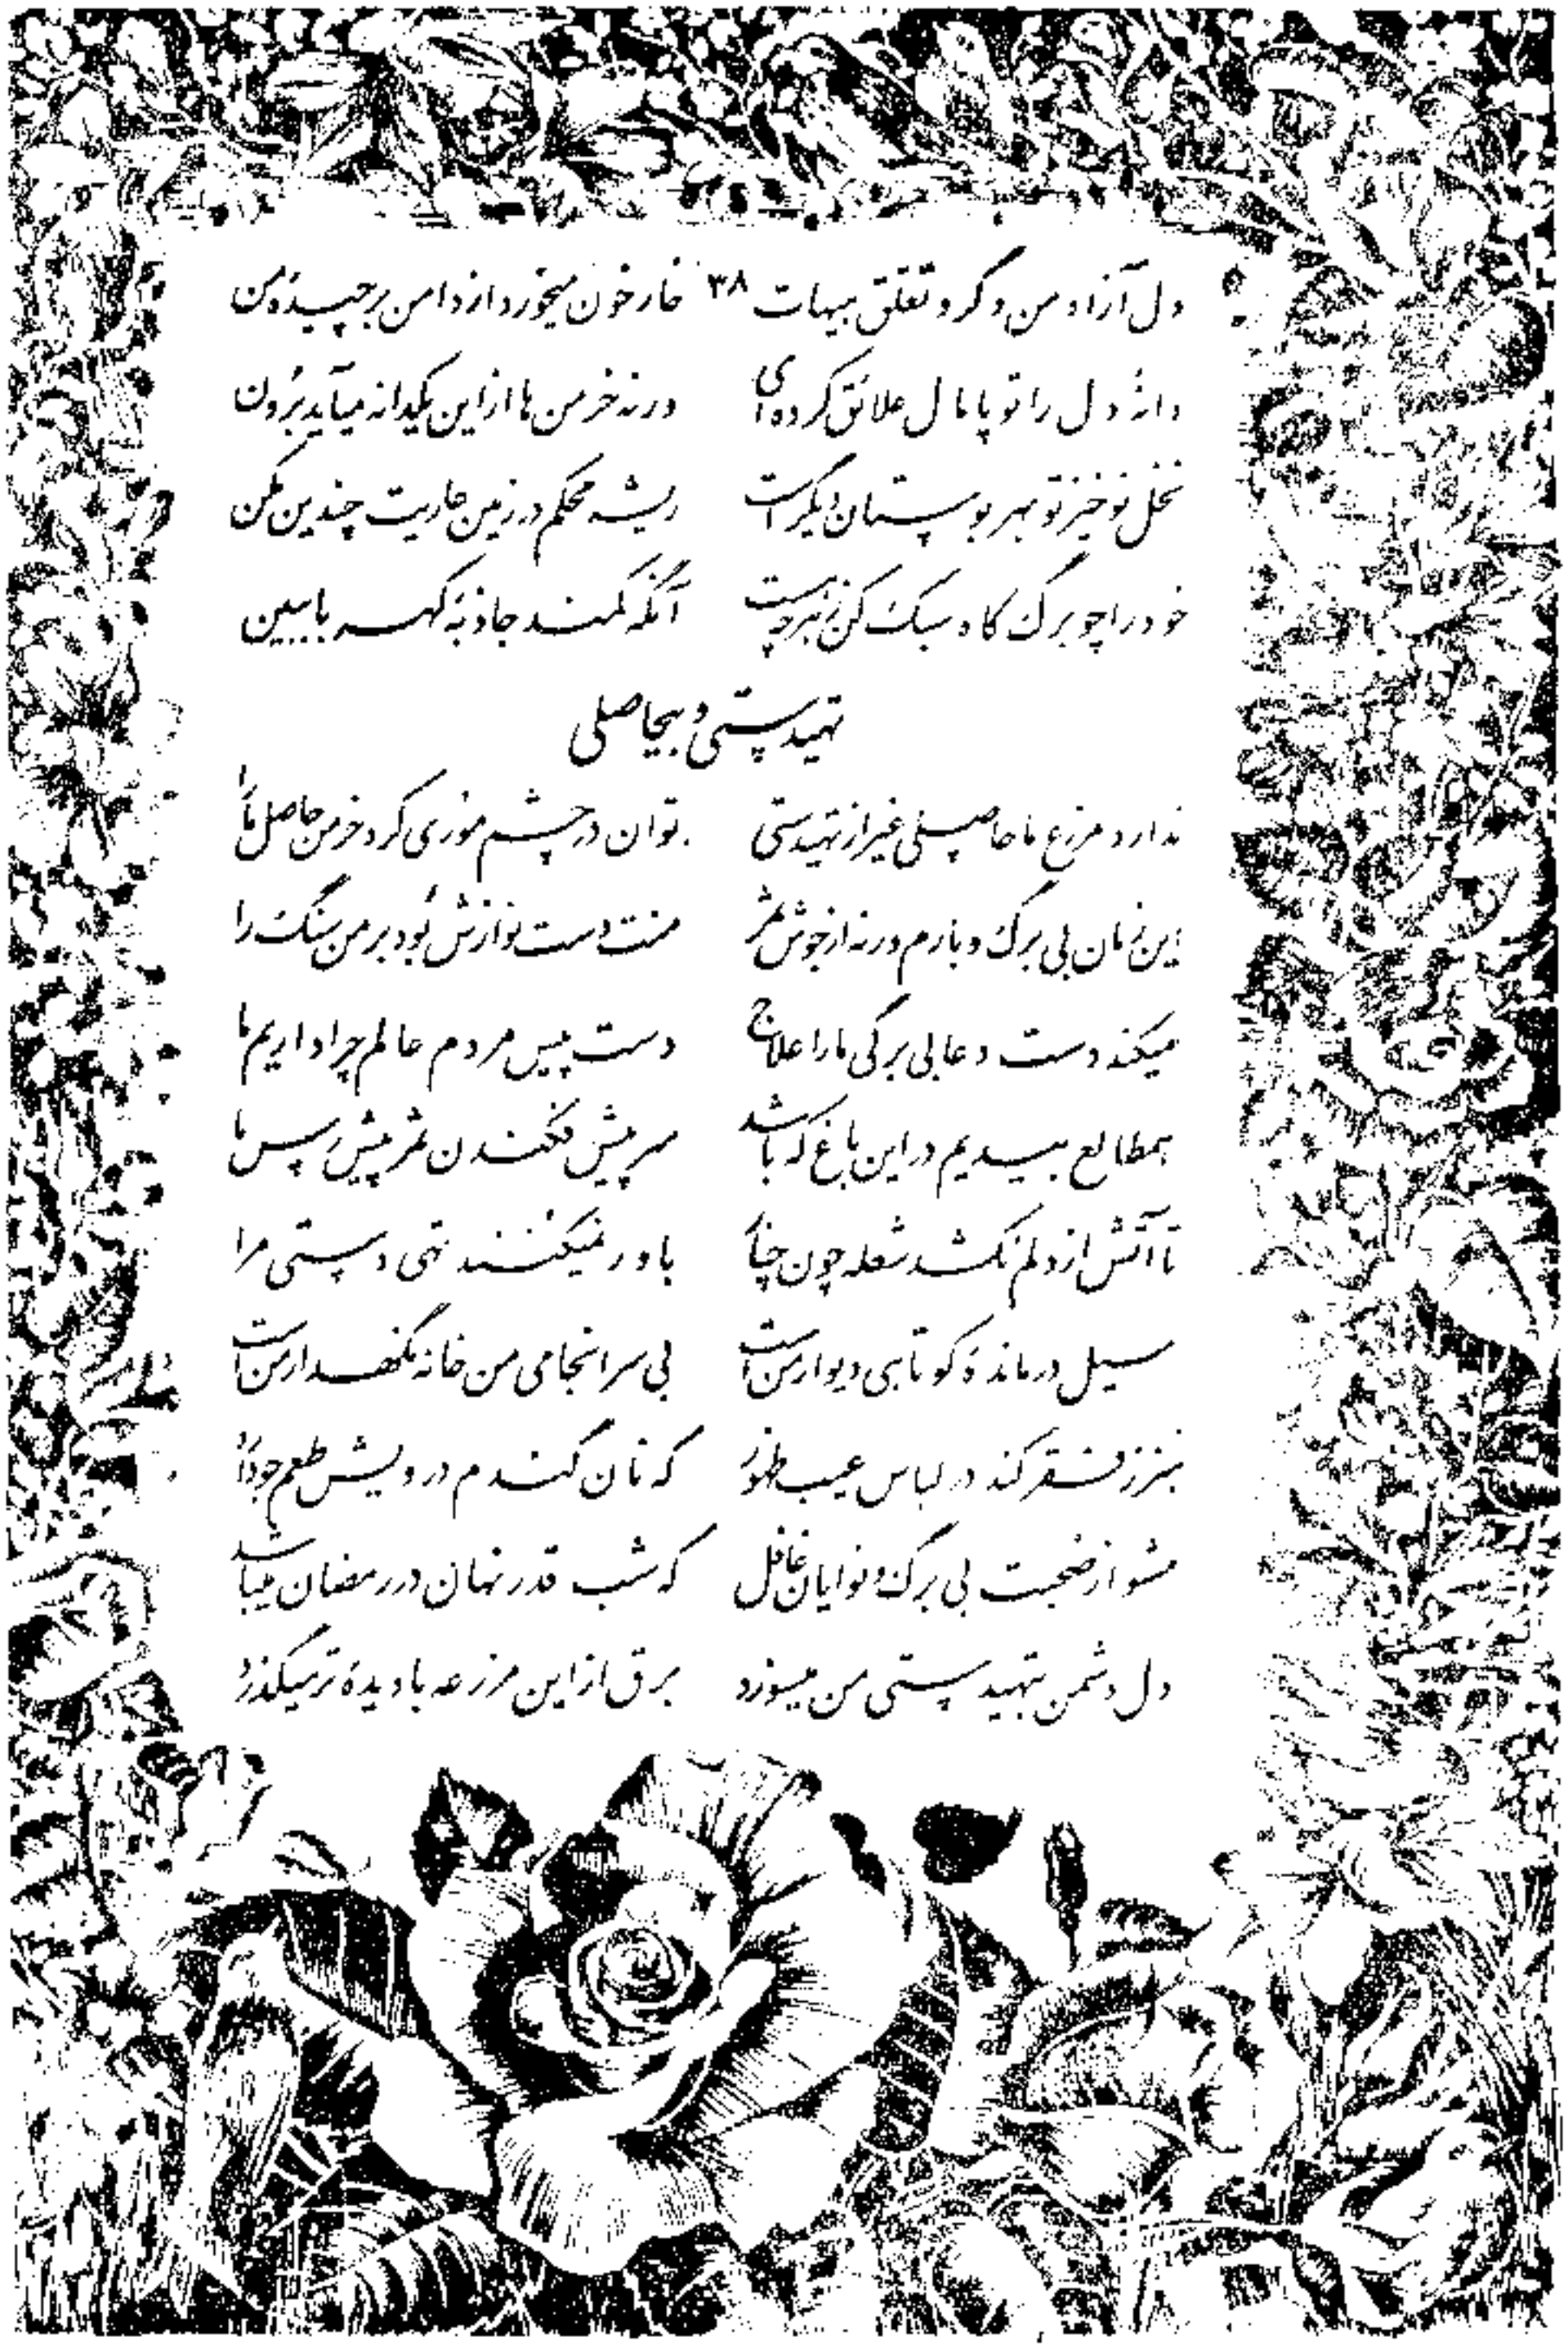 دل آزاد من و گرد تعلق هیهات ۳۸ خار خون میخورد از دامن برچیدهٔ من
دانهٔ دل را تو پامال علائق کرده‌ای ورنه خرمن ها از این یکدانه میآید برون
نخل نوخیز تو بهر بوستان دیگر است ریشه محکم در زمین عاریت چندین مکن
خود را چو برگ کاه سبک کن ز هر چه هست آنگه کمند جاذبهٔ کهربا ببین
تهیدستی و بیحاصلی
ندارد مزرع ما حاصلی غیر از تهیدستی توان در چشم موری کرد خرمن حاصل ما را
این زمان بی برگ و بارم ورنه از جوش ثمر منت دست نوازش بود بر من سنگ را
میکند دست دعا بی برگی ما را علاج دست پیش مردم عالم چرا داریم ما
همطالع بیدیم در این باغ که باشد سر پیش فکندن ثمر پیش رس ما
تا آتش از دلم نکشد شعله چون چنار باور نمیکنند تهی دستی مرا
سیل درماندهٔ کوتاهی دیوار من است بی سرانجامی من خانه نگهدار من است
هنر ز فقر کند در لباس عیب ظهور که نان گندم درویش طعم جو دارد
مشو از صحبت بی برگ و نوایان غافل که شب قدر نهان در رمضان میباشد
دل دشمن بتهیدستی من میسوزد برق از این مزرعه با دیدهٔ تر میگذرد